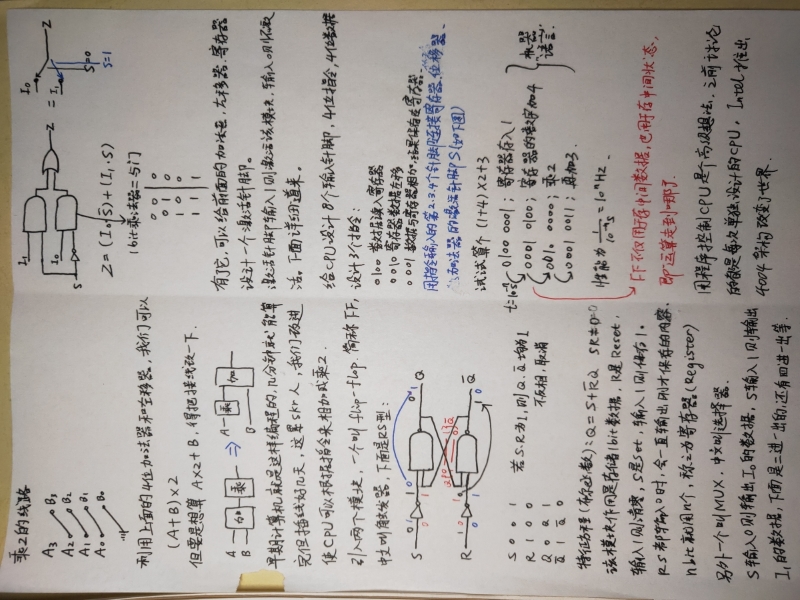 乘2的线路
A3 B3
A2 B2
A1 B1
A0 B0
利用上面的4位加法器和左移器,我们可以
(A+B)×2
但要是想算 A×2+B,得把接线改一下.
A
B
加
乘
⇒
A
乘
B
加
早期计算机就是这样编程的,几分钟就能算
完但插线好几天,这累skr人,我们改进
使CPU可以根据指令来相加或乘2.
引入两个模块,一个叫flip-flop.简称FF,
中文叫触发器,下面是RS型:
S
Q
R
Q̅
S 0 0 1
R 1 0 0
Q 0 Q 1
Q̅ 1 Q̅ 0
若S.R为1,则Q.Q̅均为1
不反相,取消
特征方程(布尔函数):Q=S+R̅Q
该模块作用是存储1bit数据,R是Reset,
输入1则清零,S是Set,输入1则保存1.
RS都输入0时,会一直输出刚才保存的内容.
n bit就用n个,称之为寄存器(Register)
另外一个叫MUX,中文叫选择器.
S输入0则输出I0的数据,S输入1则输出
I1的数据,下面是二进一出的,还有四进一出等.
I1
I0
S
Z
=
I0
I1
Z
S=0
S=1
Z=(I0·S̅)+(I1·S)
1bit乘法器=与门
0 0 0
0 1 0
1 0 0
1 1 1
有了它,可以给前面的加法器,左移器.寄存器
设计一个激活针脚.
激活针脚输入1则激活该模块,输入0则不激
活。下面详细道来。
给CPU设计8个输入针脚,4位指令,4位数据
设计3个指令:
0100 数据读入寄存器
0010 寄存器数据左移
0001 数据与寄存器相加,结果保存在寄存器.
用指令输入的第2.3.4个针脚连接寄存器,位移器.
加法器的激活针脚S(如下图)
试试算个 (1+4)×2+3
0100 0001;寄存器存入1
0001 0100;寄存器的数字加4
0010 0000;乘2
0001 0011;再加3.
机器
"语言"
FF不仅用于存中间数据,也用于存中间状态,
即运算走到哪了.
用程序控制CPU是个高级想法.之前讨论
的都是每次单独设计的CPU,Intel推出
4004架构改变了世界.